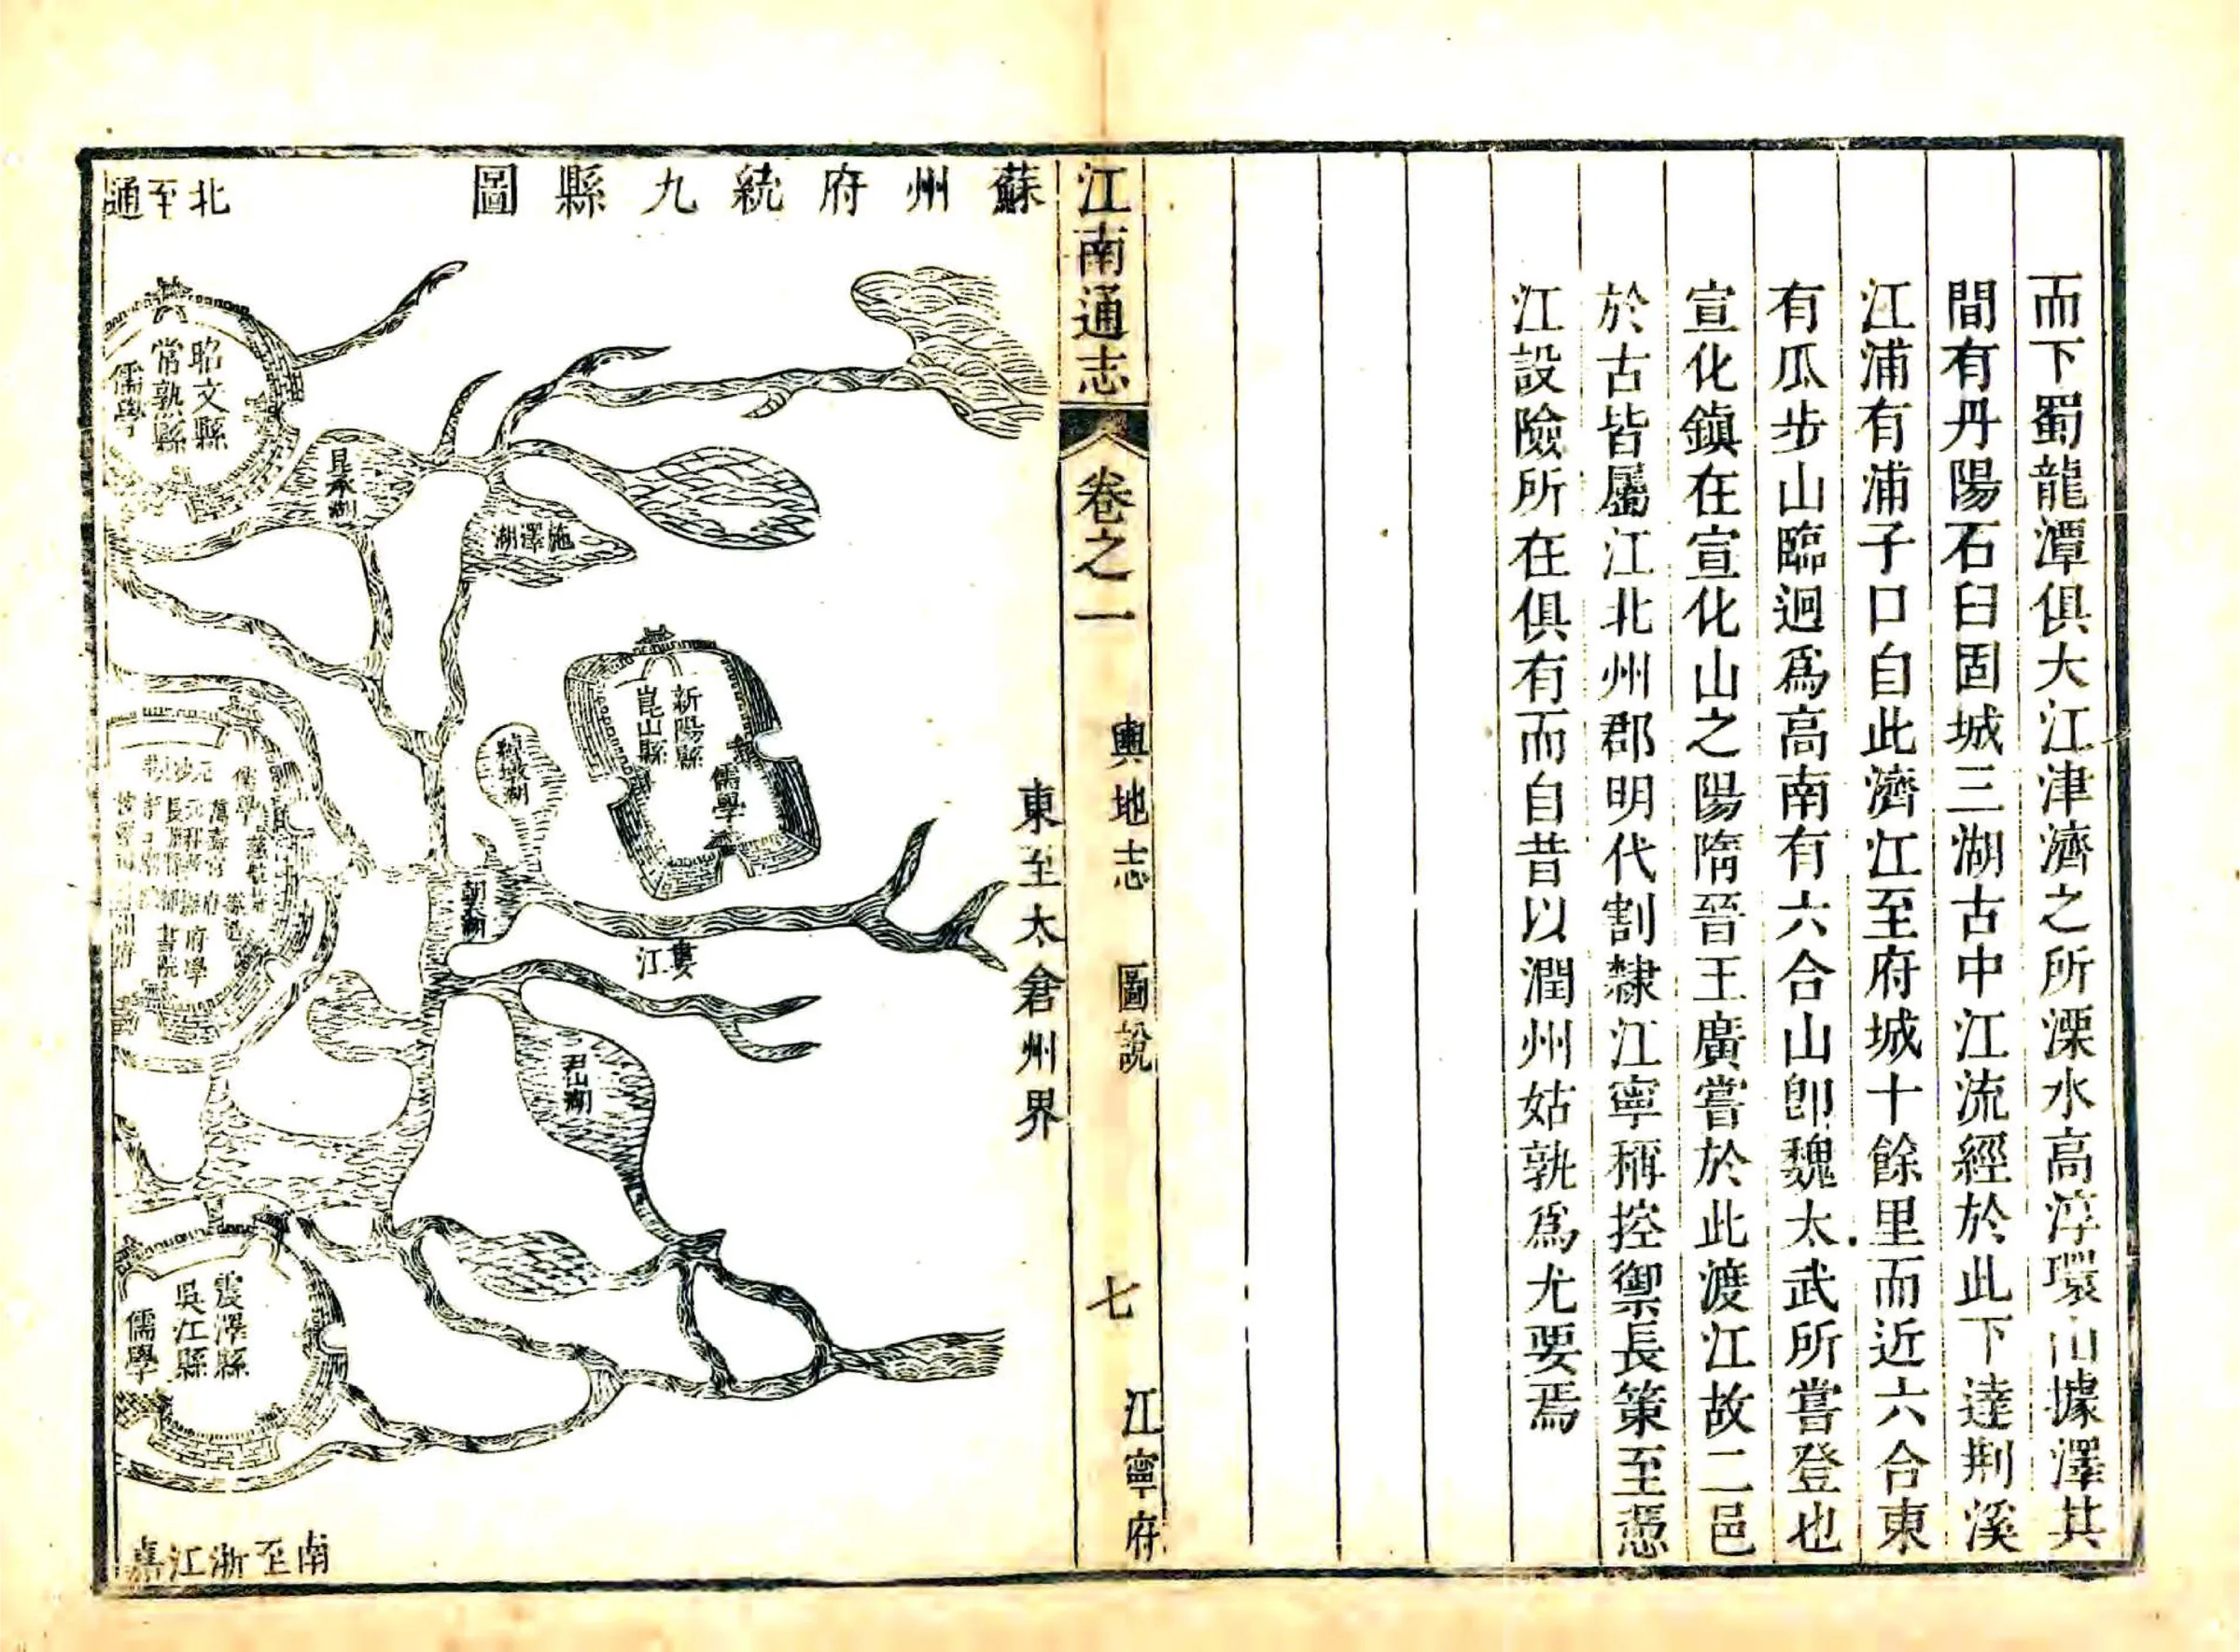 而下蜀龍潭俱大江津濟之所溧水高淳環山據澤其
間有丹陽石臼固城三湖古中江流經於此下達荆溪
江浦有浦子口自此濟江至府城十餘里而近六合東
有瓜步山臨迥爲高南有六合山卽魏太武所嘗登也
宣化鎮在宣化山之陽隋晉王廣嘗於此渡江故二邑
於古皆屬江北州郡明代割隸江寧稱控禦長策至憑
江設險所在俱有而自昔以潤州姑孰爲尤要焉
江南通志
卷之一
輿地志
圖說
七
江寧府
蘇州府統九縣圖
東至太倉州界
北至通
昭文縣
常熟縣
儒學
昆承湖
施澤湖
新陽縣
崑山縣
儒學
婁江
儒學
府學
書院
震澤縣
吳江縣
儒學
南至浙江嘉